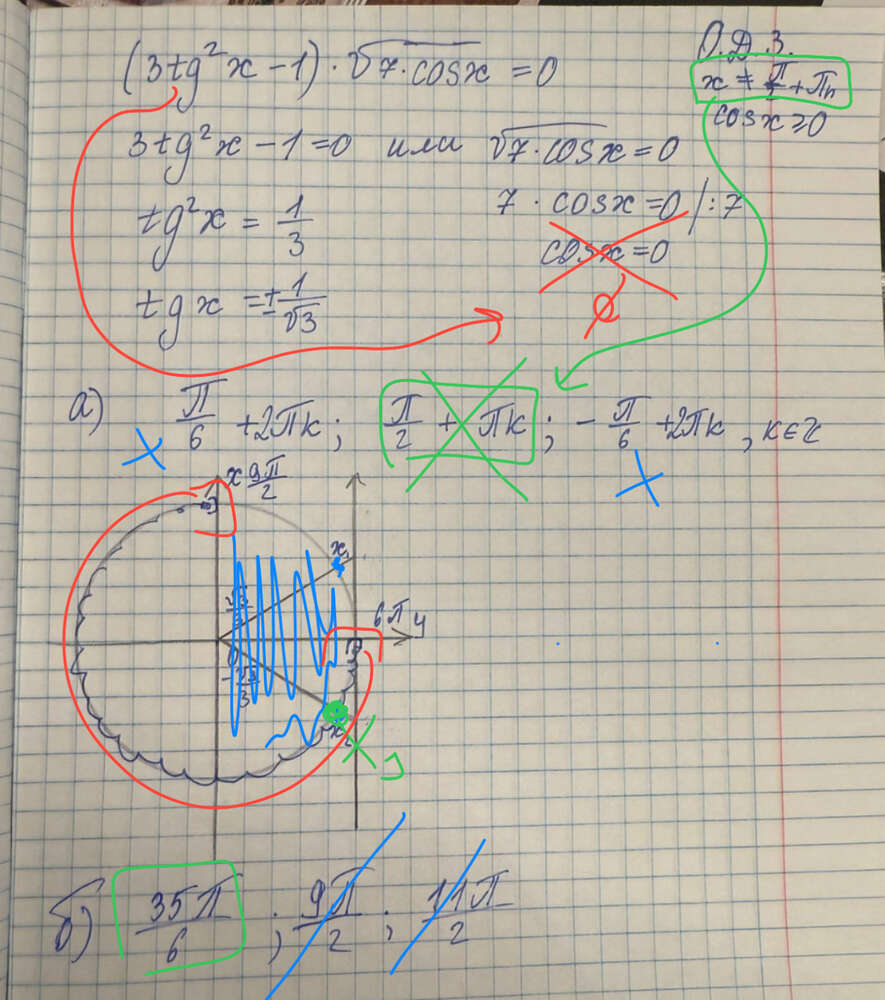 (3tg²x - 1) · √7·cosx = 0
О.Д.З.
x ≠ π/2 + πn
cosx ≥ 0
3tg²x - 1 = 0 или √7·cosx = 0
tg²x = 1/3
7 · cosx = 0 | :7
cosx = 0
tgx = ± 1/√3
∅
а) π/6 + 2πk ; π/2 + πk ; - π/6 + 2πk , k∈z
x 9π/2
x₁
√3/3
6π y
0
-√3/3
x₂
б) 35π/6 ; 9π/2 ; 11π/2